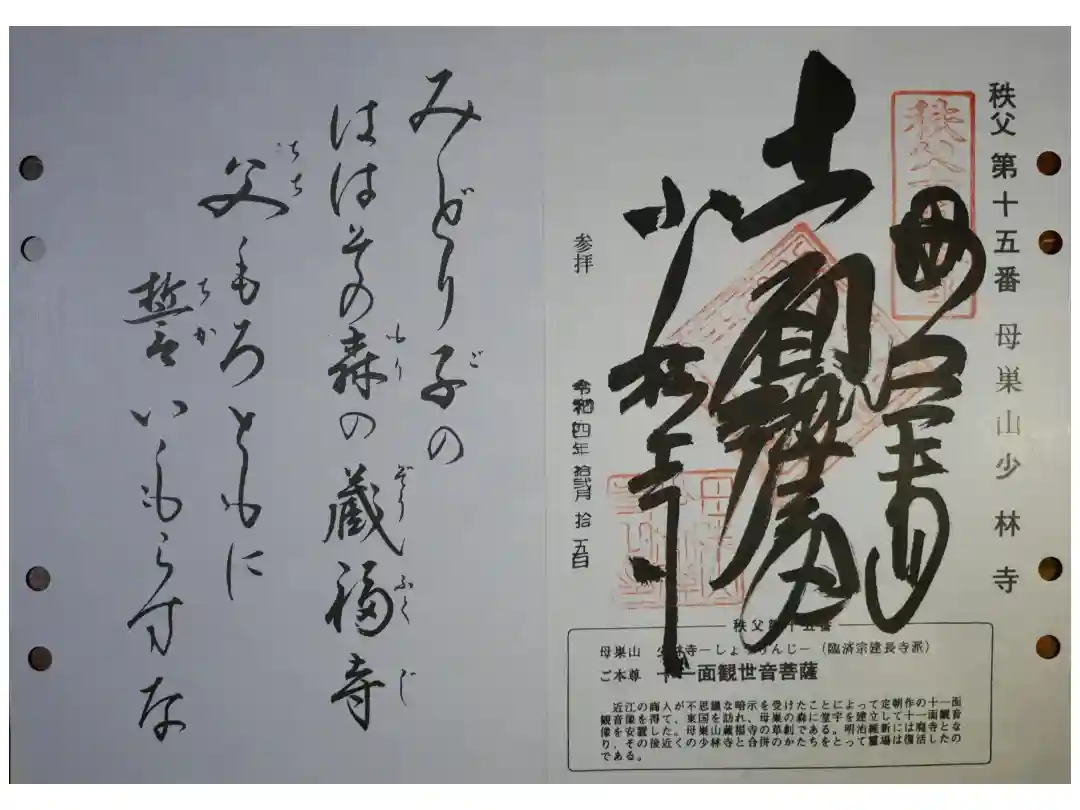 秩父 第十五番 母巣山 少林寺
十一面觀世音
少林寺
参拝
令和四年 拾弐月 拾五日
秩父第十五番
母巣山 少林寺－しょうりんじ－（臨済宗建長寺派）
ご本尊 十一面観世音菩薩
近江の商人が不思議な暗示を受けたことによって定朝作の十一面
観音像を得て、東国を訪れ、母巣の森に堂宇を建立して十一面観音
像を安置した。母巣山蔵福寺の草創である。明治維新には廃寺とな
り、その後近くの少林寺と合併のかたちをとって霊場は復活したの
である。
みどり子の
ははその森の蔵福寺
父もろともに
誓いもらすな